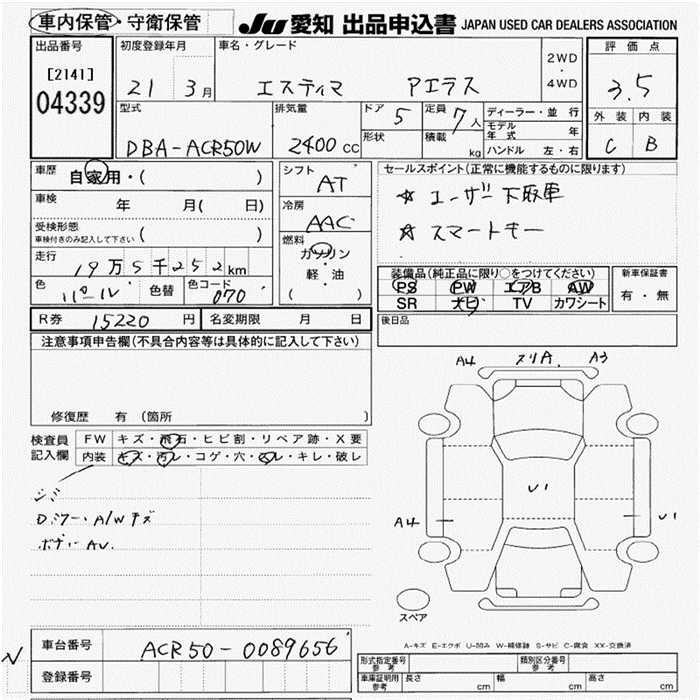 車内保管・守衛保管
JU 愛知 出品申込書 JAPAN USED CAR DEALERS ASSOCIATION
出品番号
[2141]
04339
初度登録年月
21 3月
車名・グレード
エスティマ アエラス
2WD
・
4WD
評価点
3.5
外装 内装
C B
型式
DBA-ACR50W
排気量
2400 CC
ドア 5
形状
定員 7人
積載 kg
ディーラー・並行
モデル年式 年
ハンドル 左・右
車歴
自家用・( )
車検 年 月( 日)
受検形態
車検付きのみ記入して下さい ( )
走行
19万5千252km
色 パール 色替 色コード 070
シフト
AT
冷房
AAC
燃料
ガソリン
・
軽・油
( )
セールスポイント(正常に機能するものに限ります)
☆ ユーザー下取車
☆ スマートキー
装備品(純正品に限り○をつけてください)
PS PW エアB AW
SR ナビ TV カワシート
新車保証書
有・無
R券 15220 円 名変期限 月 日
後日品
注意事項申告欄(不具合内容等は具体的に記入して下さい)
修復歴 有(箇所 )
検査員記入欄
FW キズ・飛石・ヒビ割・リペア跡・X要
内装 キズ・汚レ・コゲ・穴・スレ・キレ・破レ
シミ
Dミラー・A/Wキズ
ボディーAU.
A4 ヌリA. A3
U1
A4
U1
スペア
A-キズ E-エクボ U-凹み W-補修跡 S-サビ C-腐食 XX-交換済
車台番号 ACR50-0089656
登録番号
型式指定番号 参考
類別区分番号 参考
車庫証明用 参考 長さ cm 幅 cm 高さ cm